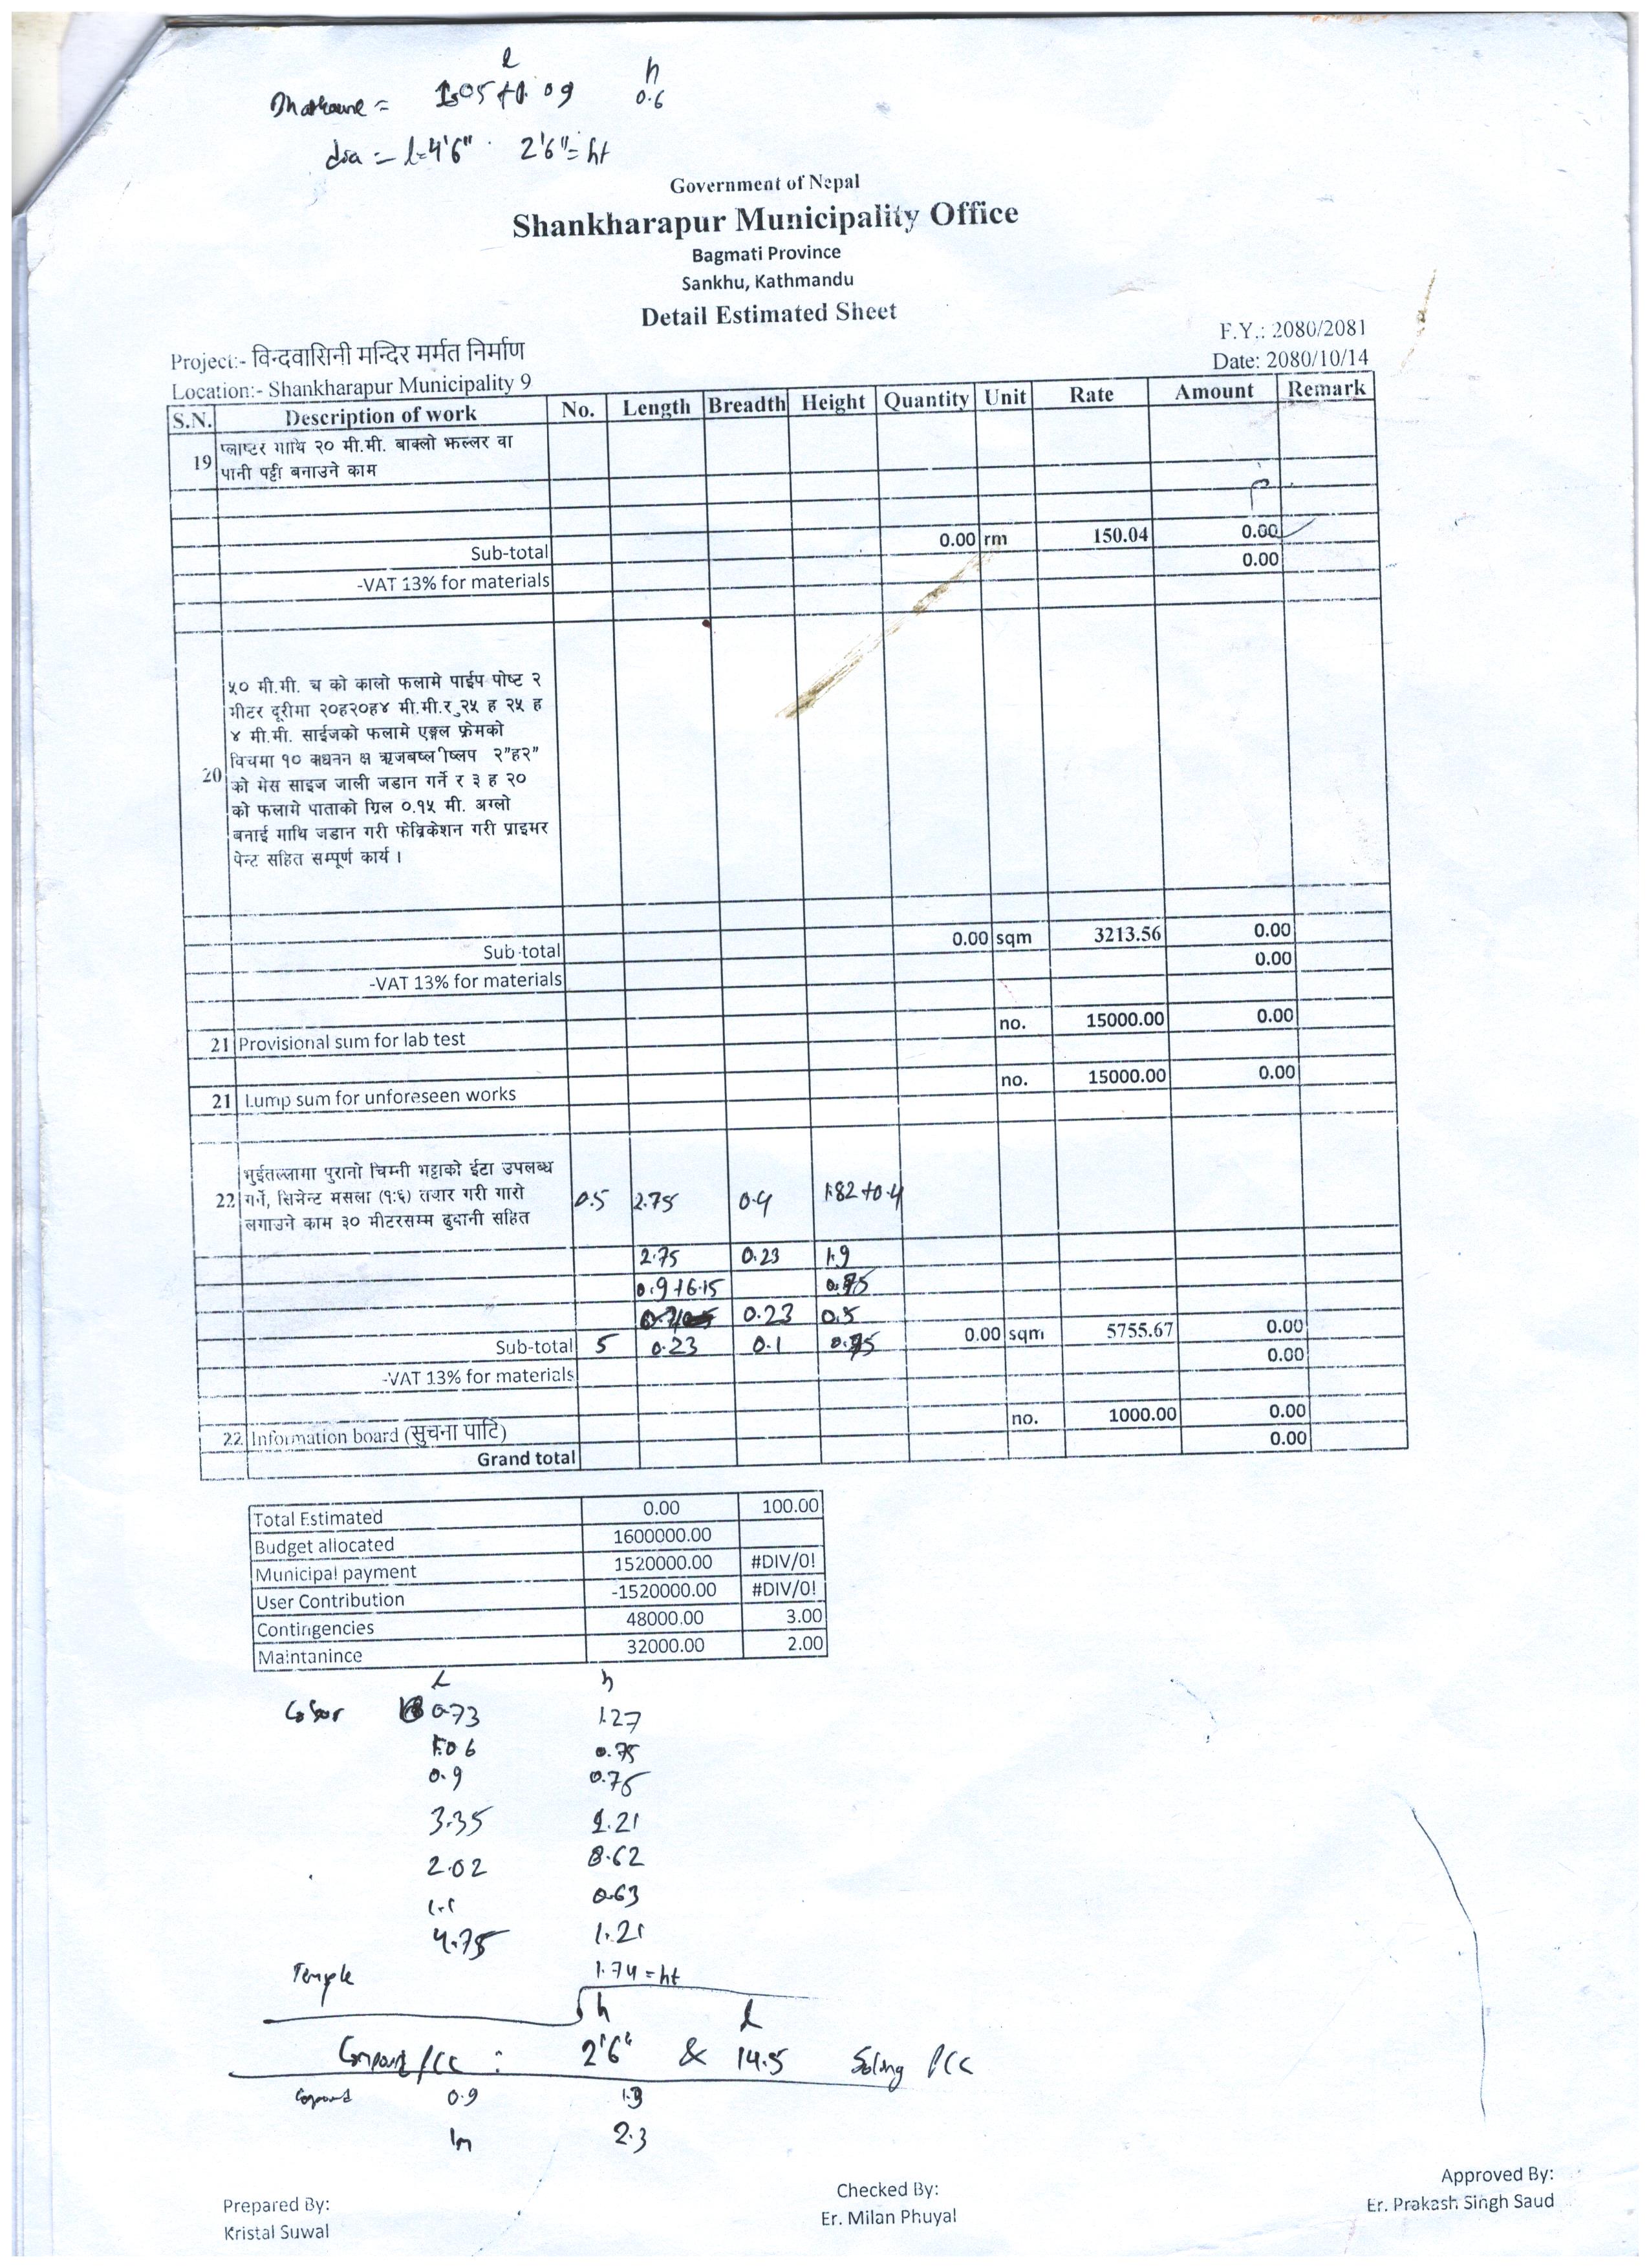 l h
= 1.05 + 1.09 0.6
dia = l=4'6" 2'6"= ht
Government of Nepal
Shankharapur Municipality Office
Bagmati Province
Sankhu, Kathmandu
Detail Estimated Sheet
F.Y.: 2080/2081
Project:- विन्दवासिनी मन्दिर मर्मत निर्माण
Date: 2080/10/14
Location:- Shankharapur Municipality 9
S.N. Description of work No. Length Breadth Height Quantity Unit Rate Amount Remark
19 प्लाष्टर माथि २० मी.मी. बाक्लो झल्लर वा
पानी पट्टी बनाउने काम
Sub-total 0.00 rm 150.04 0.00
-VAT 13% for materials 0.00
५० मी.मी. च को कालो फलामे पाईप पोष्ट २
मीटर दूरीमा २०ह२०ह४ मी.मी.र २५ ह २५ ह
४ मी.मी. साईजको फलामे एङ्गल फ्रेमको
विचमा १० क्षधनन क्ष ऋजबष्ल ीष्लप २"ह२"
20 को मेस साइज जाली जडान गर्ने र ३ ह २०
को फलामे पाताको ग्रिल ०.१५ मी. अग्लो
बनाई माथि जडान गरी फेब्रिकेशन गरी प्राइमर
पेन्ट सहित सम्पूर्ण कार्य ।
Sub-total 0.00 sqm 3213.56 0.00
-VAT 13% for materials 0.00
21 Provisional sum for lab test no. 15000.00 0.00
21 Lump sum for unforeseen works no. 15000.00 0.00
भुईतल्लामा पुरानो चिम्नी भट्टाको ईटा उपलब्ध
22 गर्ने, सिमेन्ट मसला (१:६) तयार गरी गारो 0.5 2.75 0.4 1.82 +0.4
लगाउने काम ३० मीटरसम्म ढुवानी सहित
2.75 0.23 1.9
0.9 +6.15 0.75
0.23 0.5
Sub-total 5 0.23 0.1 0.75 0.00 sqm 5755.67 0.00
-VAT 13% for materials 0.00
22 Information board (सुचना पाटि) no. 1000.00 0.00
Grand total 0.00
Total Estimated 0.00 100.00
Budget allocated 1600000.00
Municipal payment 1520000.00 #DIV/0!
User Contribution -1520000.00 #DIV/0!
Contingencies 48000.00 3.00
Maintanince 32000.00 2.00
l h
Colour 0.73 1.27
1.06 0.75
0.9 0.75
3.35 1.21
2.02 0.62
1.1 0.63
4.75 1.21
Temple 1.74 = ht
h l
Compound PCC : 2'6" & 14.5 Soling PCC
Compound 0.9 1.3
1m 2.3
Prepared By:
Kristal Suwal
Checked By:
Er. Milan Phuyal
Approved By:
Er. Prakash Singh Saud